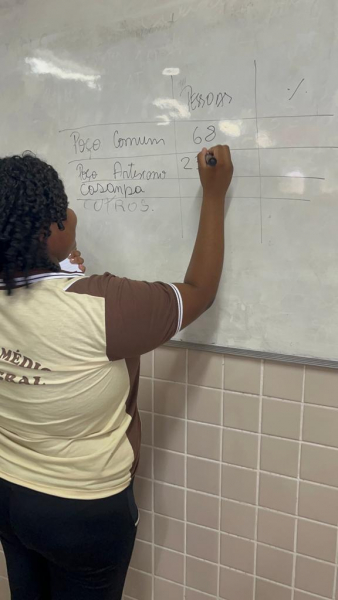 Pessoas %
Poço Comum 68
Poço Artesiano 2
Cosanpa
OUTROS.
MÉDIO